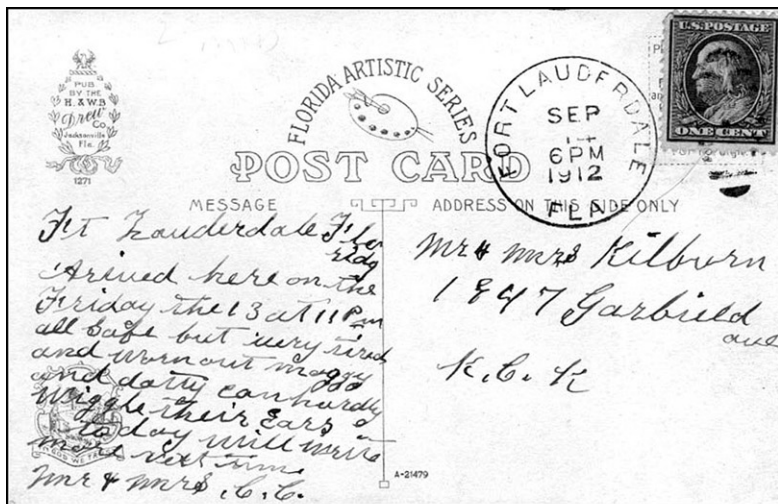 PUB.
BY THE
H. & W.B.
Drew
Co.
Jacksonville
Fla.
1271
FLORIDA ARTISTIC SERIES
POST CARD
FORT LAUDERDALE
SEP
14
6 PM
1912
FLA.
U.S. POSTAGE
ONE CENT
MESSAGE
ADDRESS ON THIS SIDE ONLY
Ft Lauderdale Flo
rida
Arived here on the
Friday the 13 at 11 Pm
all safe but very tired
and wornout maggy
and dotty can hardly
wiggle their Ears
to day will write
more next time
Mr & Mrs C.C.
IN GOD WE TRUST
A-21479
Mr & Mrs Kilburn
1847 Garfield
ave
K.C. K